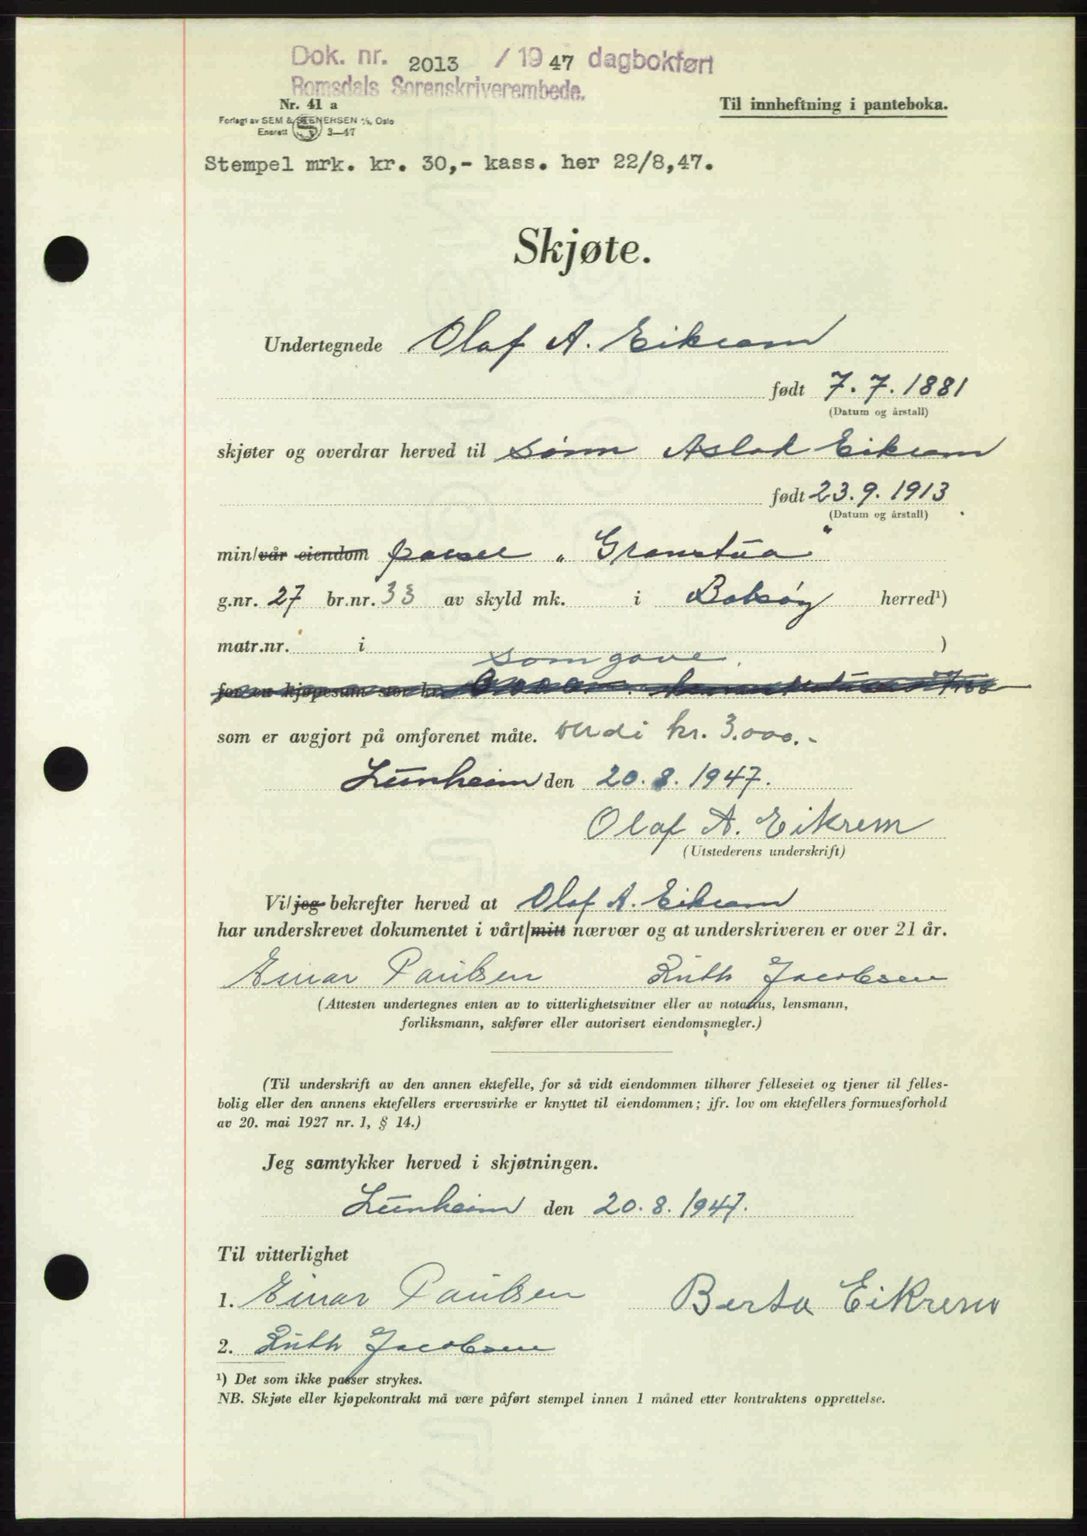 Dok. nr. 2013 / 1947 dagbokført
Romsdals Sorenskriverembede.
Nr. 41 a
Til innheftning i panteboka.
Forlagt av SEM & STENERSEN A/S, Oslo
Enerett 3—47
Stempel mrk. kr. 30,- kass. her 22/8,47.
Skjøte.
Undertegnede Olaf A. Eikrem
født 7.7.1881
(Datum og årstall)
skjøter og overdrar herved til sønn Aslak Eikrem
født 23.9.1913
(Datum og årstall)
min/vår eiendom parsel „Granstua"
g.nr. 27 br.nr. 33 av skyld mk. i Bolsøy herred¹)
matr.nr. i )
som gave.
for en kjøpesum stor kr.
som er avgjort på omforenet måte. verdi kr. 3.000.-
Lunheim den 20.8.1947.
Olaf A. Eikrem
(Utstederens underskrift)
Vi/jeg bekrefter herved at Olaf A. Eikrem
har underskrevet dokumentet i vårt/mitt nærvær og at underskriveren er over 21 år.
Einar Paulsen Ruth Jacobsen
(Attesten undertegnes enten av to vitterlighetsvitner eller av notarius, lensmann,
forliksmann, sakfører eller autorisert eiendomsmegler.)
(Til underskrift av den annen ektefelle, for så vidt eiendommen tilhører felleseiet og tjener til felles-
bolig eller den annens ektefellers ervervsvirke er knyttet til eiendommen; jfr. lov om ektefellers formuesforhold
av 20. mai 1927 nr. 1, § 14.)
Jeg samtykker herved i skjøtningen.
Lunheim den 20.8.1947.
Til vitterlighet
1. Einar Paulsen Berta Eikrem
2. Ruth Jacobsen
¹) Det som ikke passer strykes.
NB. Skjøte eller kjøpekontrakt må være påført stempel innen 1 måned etter kontraktens opprettelse.